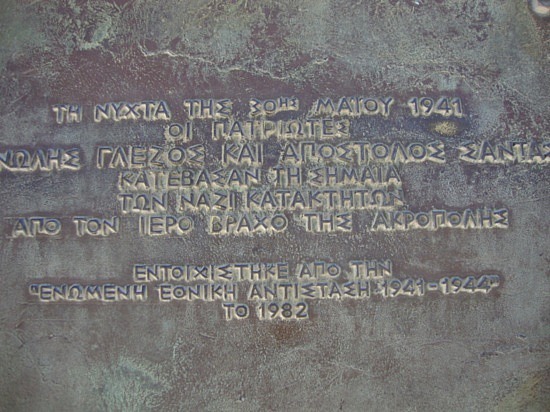 ΤΗ ΝΥΧΤΑ ΤΗΣ 30ης ΜΑΙΟΥ 1941
ΟΙ ΠΑΤΡΙΩΤΕΣ
ΝΩΛΗΣ ΓΛΕΖΟΣ ΚΑΙ ΑΠΟΣΤΟΛΟΣ ΣΑΝΤΑΣ
ΚΑΤΕΒΑΣΑΝ ΤΗ ΣΗΜΑΙΑ
ΤΩΝ ΝΑΖΙ ΚΑΤΑΚΤΗΤΩΝ
ΑΠΟ ΤΟΝ ΙΕΡΟ ΒΡΑΧΟ ΤΗΣ ΑΚΡΟΠΟΛΗΣ
ΕΝΤΟΙΧΙΣΤΗΚΕ ΑΠΟ ΤΗΝ
"ΕΝΩΜΕΝΗ ΕΘΝΙΚΗ ΑΝΤΙΣΤΑΣΗ 1941-1944"
ΤΟ 1982